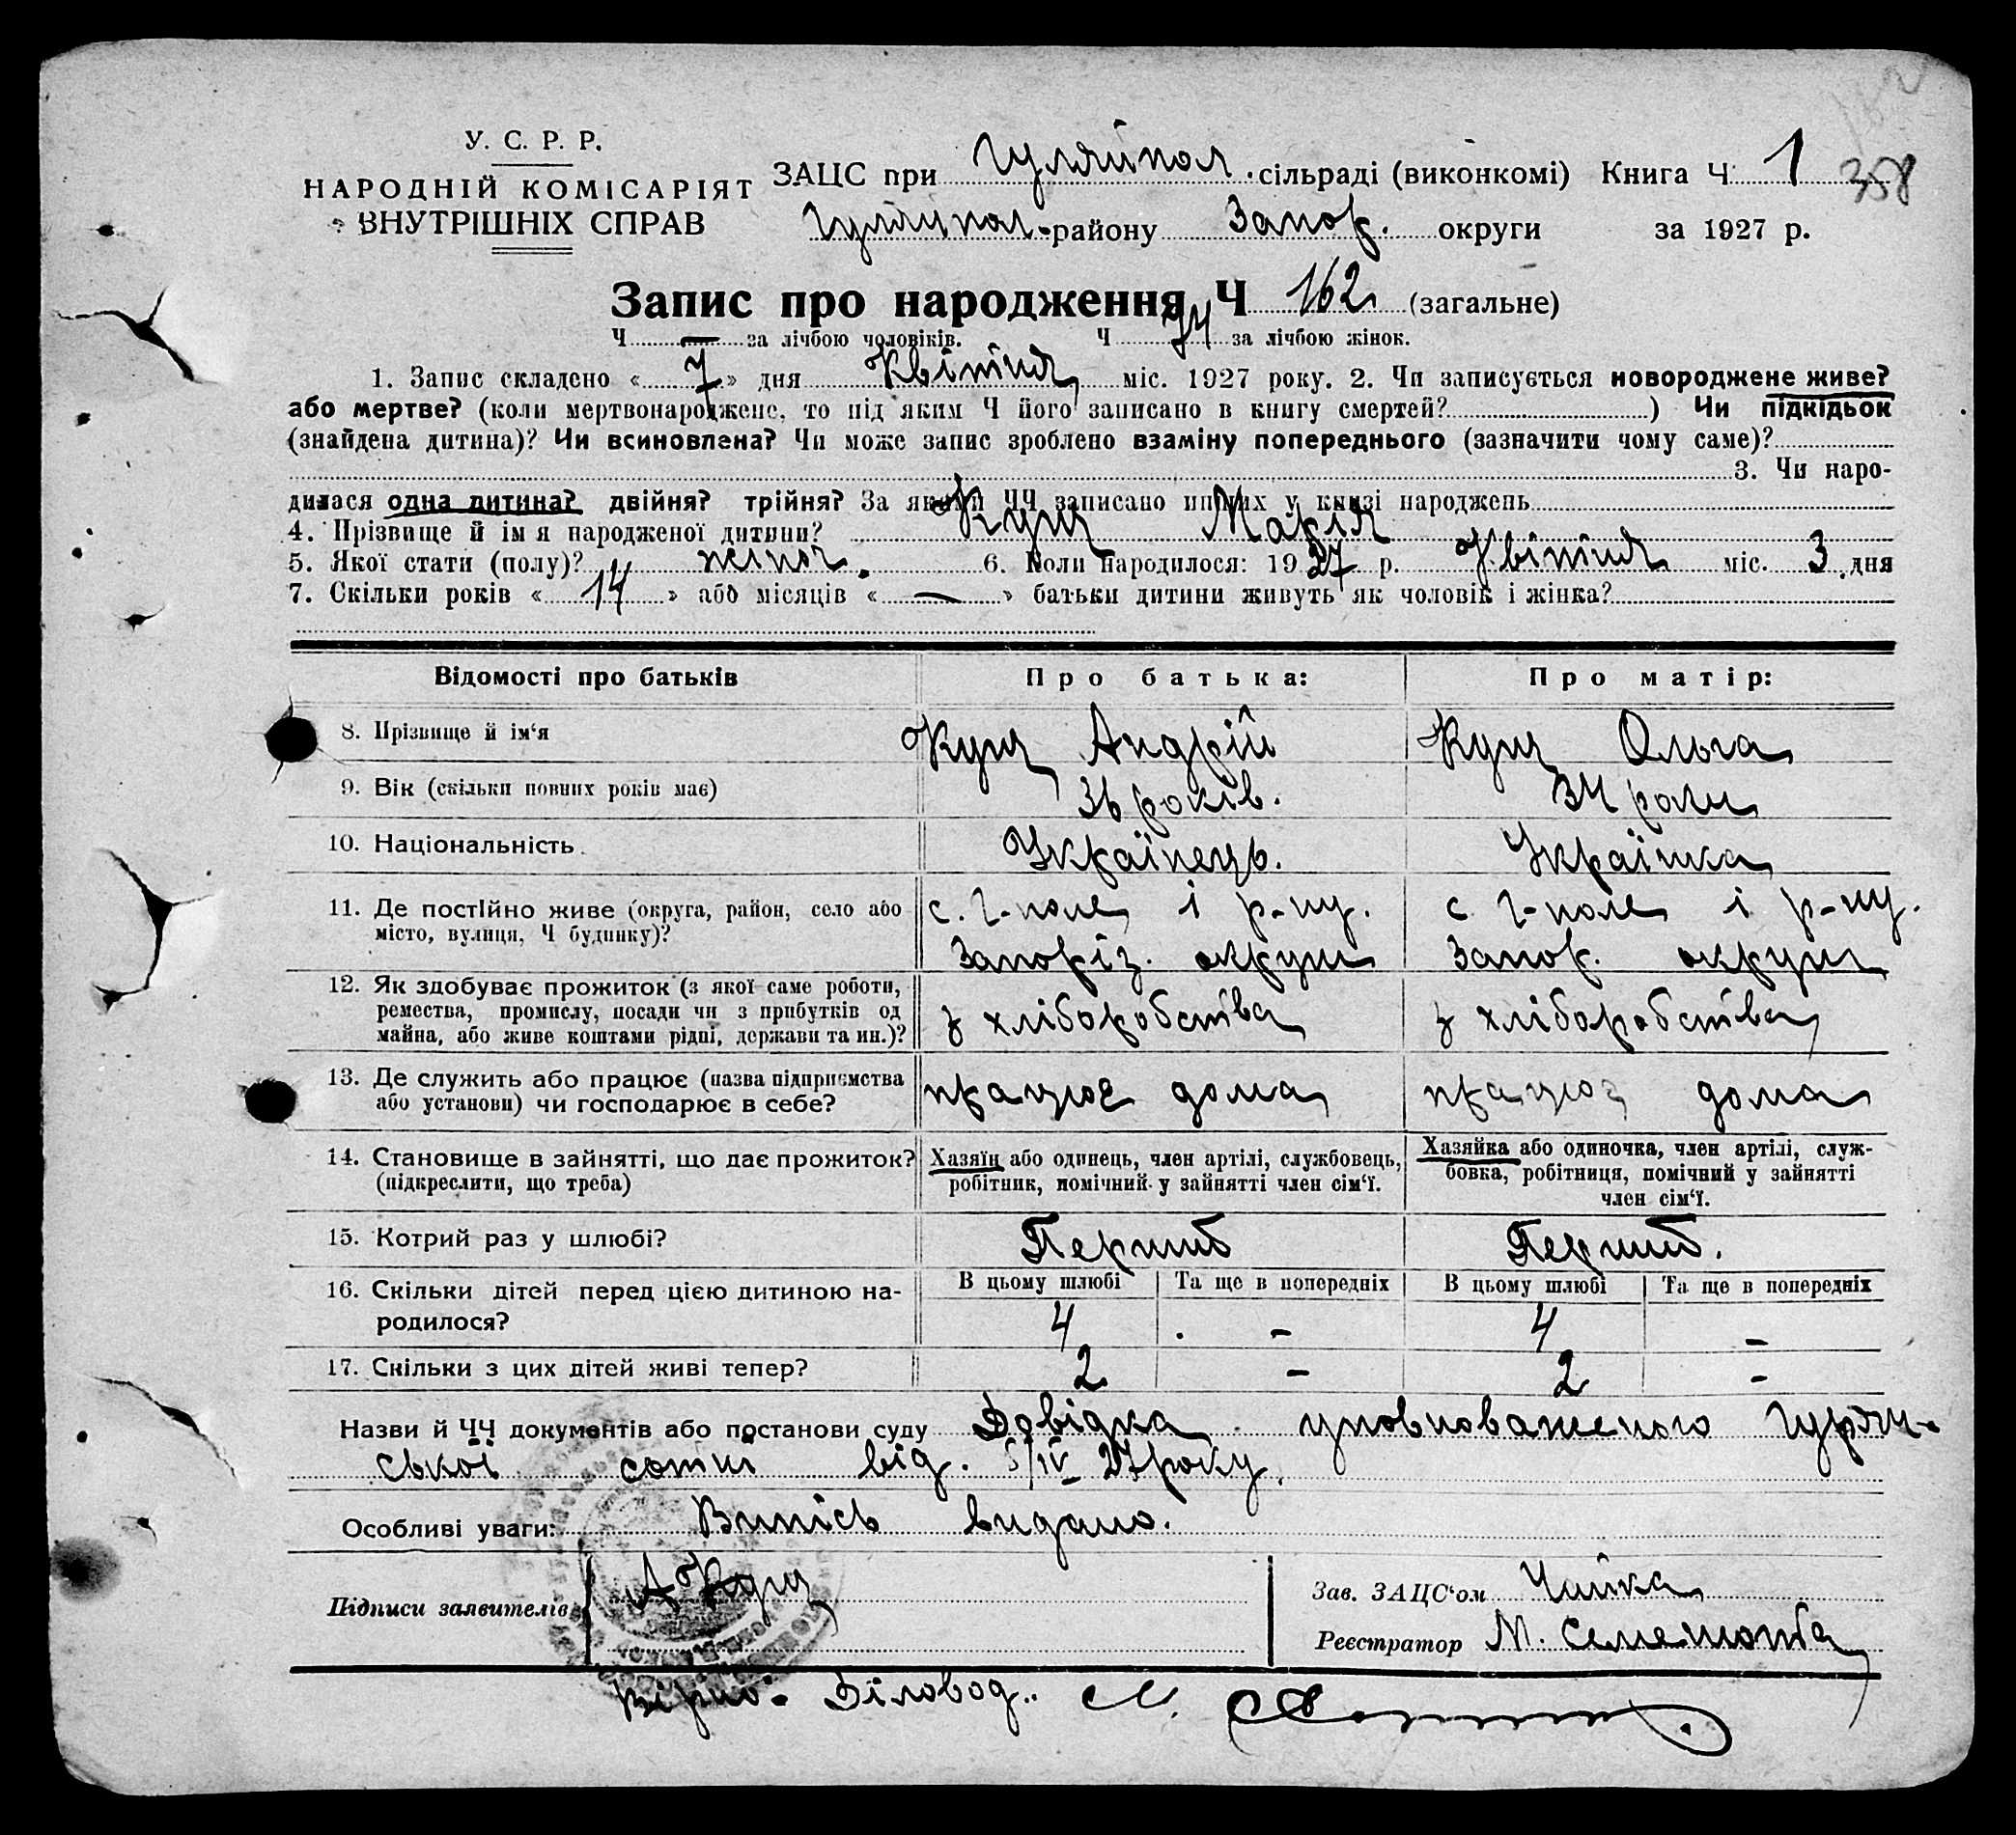 У. С. Р. Р.
НАРОДНІЙ КОМІСАРІЯТ
ВНУТРІШНІХ СПРАВ
ЗАЦС при Гуляйпол. сільраді (виконкомі) Книга Ч 1
358
Гуляйпол. району Запор. округи за 1927 р.
Запис про народження Ч 162 (загальне)
Ч — за лічбою чоловіків. Ч 74 за лічбою жінок.
1. Запис складено « 7 » дня Квітня міс. 1927 року. 2. Чи записується новороджене живе?
або мертве? (коли мертвонароджене, то під яким Ч його записано в книгу смертей? ) Чи підкідьок
(знайдена дитина)? Чи всиновлена? Чи може запис зроблено взаміну попереднього (зазначити чому саме)?
3. Чи наро-
дилася одна дитина? двійня? трійня? За якими ЧЧ записано инших у книзі народжень
4. Прізвище й ім я народженої дитини? Кущ Марія
5. Якої стати (полу)? жіноч. 6. Коли народилося: 1927 р. Квітня міс. 3 дня
7. Скільки років « 14 » або місяців « — » батьки дитини живуть як чоловік і жінка?
Відомості про батьків Про батька: Про матір:
8. Прізвище й ім‘я Кущ Андрій Кущ Ольга
9. Вік (скільки повних років має) 36 років. 34 роки
10. Національність. Українець. Українка
11. Де постійно живе (округа, район, село або с. Г-поле і р-ну. с. Г-поле і р-ну.
місто, вулиця, Ч будинку)? Запоріз. округи Запор. округи
12. Як здобуває прожиток (з якої саме роботи,
ремества, промислу, посади чи з прибутків од з хліборобства з хліборобства
майна, або живе коштами рідні, держави та ин.)?
13. Де служить або працює (назва підприємства працює дома працює дома
або установи) чи господарює в себе?
14. Становище в зайнятті, що дає прожиток? Хазяїн або одинець, член артілі, службовець, Хазяйка або одиночка, член артілі, служ-
(підкреслити, що треба) робітник, помічний у зайнятті член сім‘ї. бовка, робітниця, помічний у зайнятті
член сім‘ї.
15. Котрий раз у шлюбі? Перший Перший.
16. Скільки дітей перед цією дитиною на- В цьому шлюбі Та ще в попередніх В цьому шлюбі Та ще в попередніх
родилося? 4 - 4 -
17. Скільки з цих дітей живі тепер? 2 - 2 -
Назви й ЧЧ документів або постанови суду Довідка уповноваженого
ської сотні від. 5/IV 27 року.
Особливі уваги: Випись видано.
Підписи заявителів А Кущ Зав. ЗАЦС‘ом Чайка
Реєстратор М.
Вірно: Діловод..